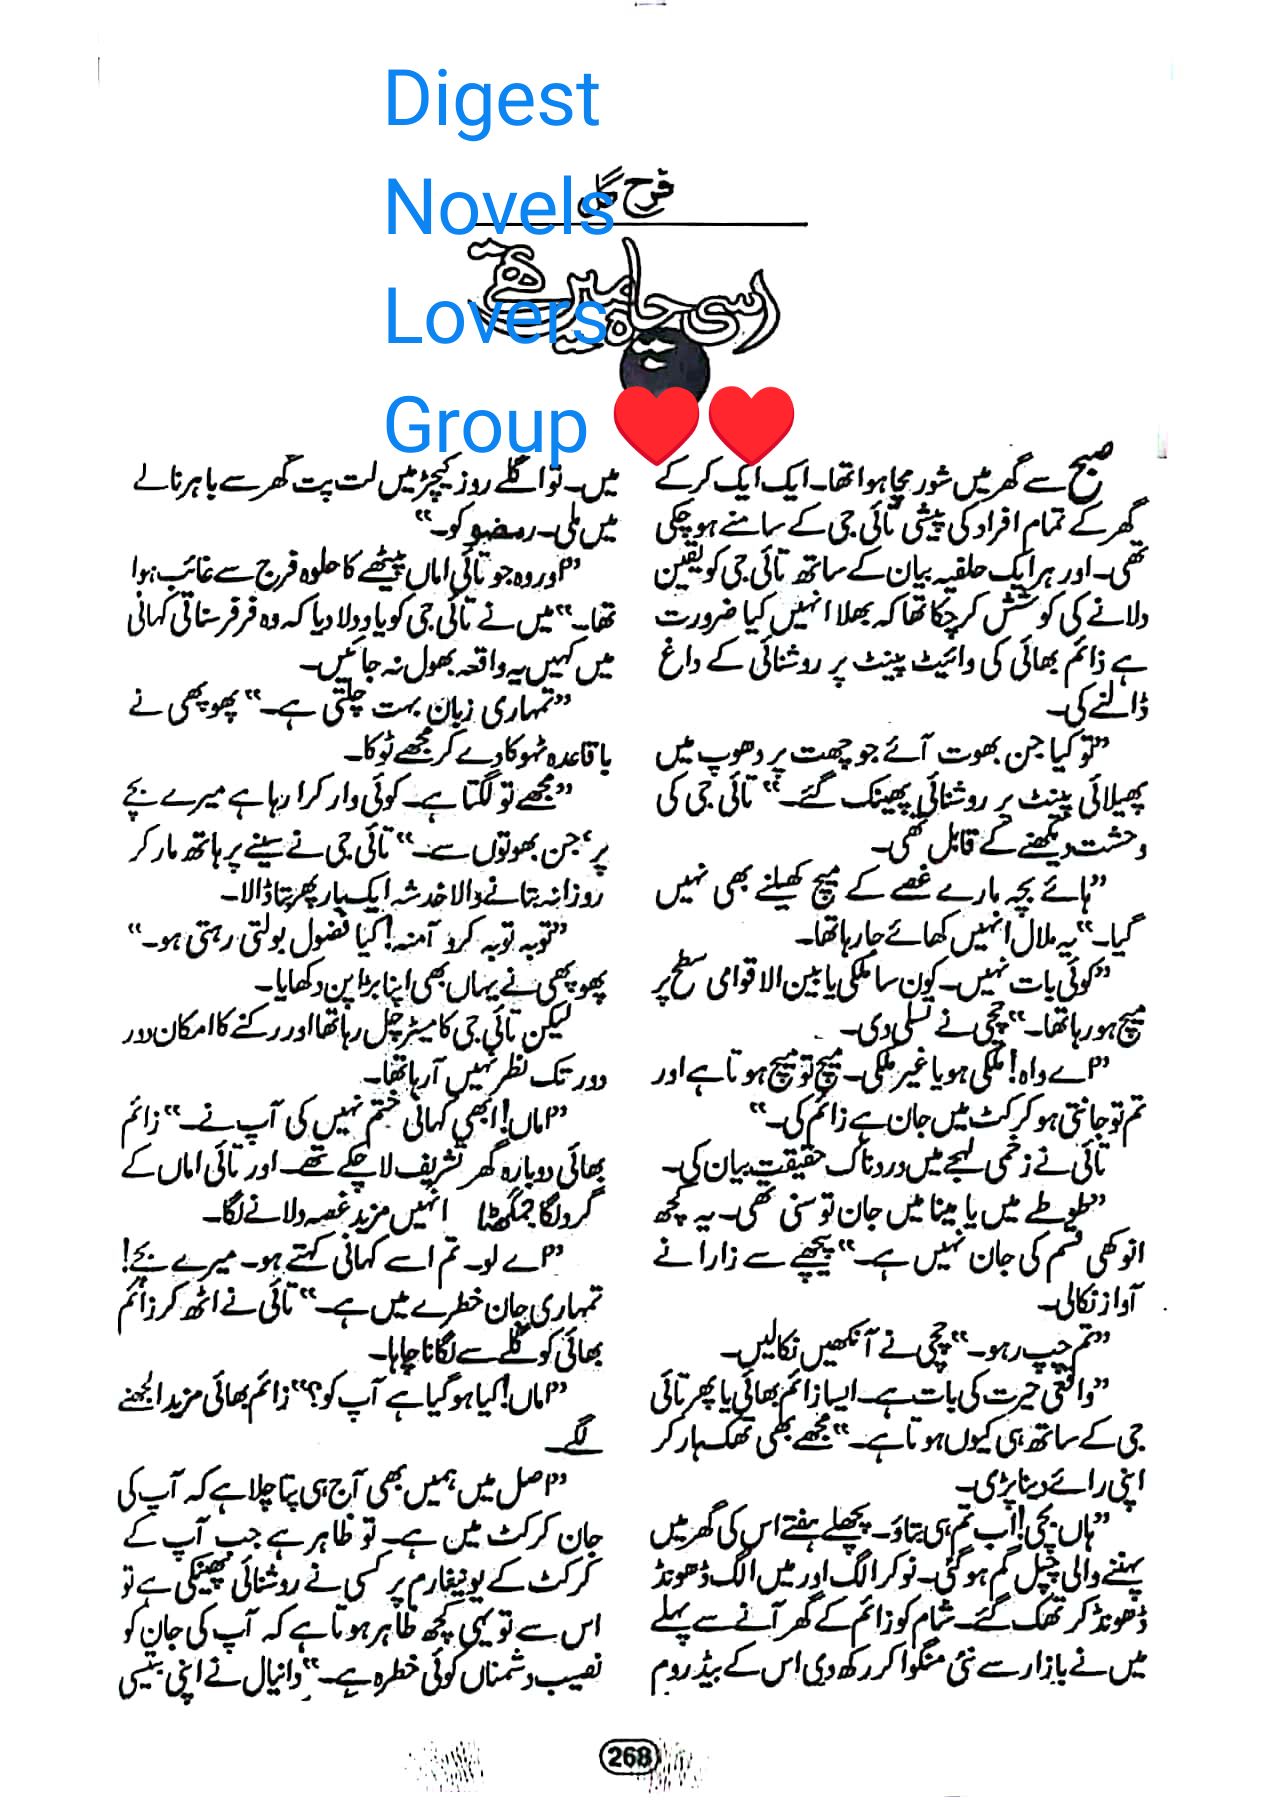 Digest
Novels
Lovers
Group ❤️❤️
فرح گل
اسی چاہ میں تھے
صبح سے گھر میں شور مچا ہوا تھا۔ ایک ایک کر کے
گھر کے تمام افراد کی پیشی تائی جی کے سامنے ہو چکی
تھی۔ اور ہر ایک حلفیہ بیان کے ساتھ تائی جی کو یقین
دلانے کی کوشش کر چکا تھا کہ بھلا انہیں کیا ضرورت
ہے زائم بھائی کی وائیٹ پینٹ پر روشنائی کے داغ
ڈالنے کی۔
”تو کیا جن بھوت آئے جو چھت پر دھوپ میں
پھیلائی پینٹ پر روشنائی پھینک گئے۔“ تائی جی کی
وحشت دیکھنے کے قابل تھی۔
”ہائے بچہ مارے غصے کے میچ کھیلنے بھی نہیں
گیا۔“ یہ ملال انہیں کھائے جا رہا تھا۔
”کوئی بات نہیں۔ کون سا ملکی یا بین الاقوامی سطح پر
میچ ہو رہا تھا۔“ چچی نے تسلی دی۔
”اے واہ! ملکی ہو یا غیر ملکی۔ میچ تو میچ ہوتا ہے اور
تم تو جانتی ہو کرکٹ میں جان ہے زائم کی۔“
تائی نے زخمی لہجے میں دردناک حقیقت بیان کی۔
”طوطے میں یا مینا میں جان تو سنی تھی۔ یہ کچھ
انوکھی قسم کی جان نہیں ہے۔“ پیچھے سے زارا نے
آواز نکالی۔
”تم چپ رہو۔“ چچی نے آنکھیں نکالیں۔
”واقعی حیرت کی بات ہے۔ ایسا زائم بھائی یا پھر تائی
جی کے ساتھ ہی کیوں ہوتا ہے۔“ مجھے بھی تھک ہار کر
اپنی رائے دینا پڑی۔
”ہاں بچی! اب تم ہی بتاؤ۔ پچھلے ہفتے اس کی گھر میں
پہننے والی چپل گم ہو گئی۔ نوکر الگ اور میں الگ ڈھونڈ
ڈھونڈ کر تھک گئے۔ شام کو زائم کے گھر آنے سے پہلے
میں نے بازار سے نئی منگوا کر رکھ دی اس کے بیڈ روم
میں۔ تو اگلے روز کیچڑ میں لت پت گھر سے باہر نالے
میں ملی۔ رمضو کو۔“
”اور وہ جو تائی اماں پیٹھے کا حلوہ فریج سے غائب ہوا
تھا۔“ میں نے تائی جی کو یاد دلا دیا کہ وہ فرفر سناتی کہانی
میں کہیں یہ واقعہ بھول نہ جائیں۔
”تمہاری زبان بہت چلتی ہے۔“ پھوپھی نے
باقاعدہ ٹہوکا دے کر مجھے ٹوکا۔
”مجھے تو لگتا ہے۔ کوئی وار کرا رہا ہے میرے بچے
پر، جن بھوتوں سے۔“ تائی جی نے سینے پر ہاتھ مار کر
روزانہ بتانے والا خدشہ ایک بار پھر بتا ڈالا۔
”توبہ توبہ کرو آمنہ! کیا فضول بولتی رہتی ہو۔“
پھوپھی نے یہاں بھی اپنا بڑا پن دکھایا۔
لیکن تائی جی کا میٹر چل رہا تھا اور رکنے کا امکان دور
دور تک نظر نہیں آ رہا تھا۔
”اماں! ابھی کہانی ختم نہیں کی آپ نے۔“ زائم
بھائی دوبارہ گھر تشریف لا چکے تھے۔ اور تائی اماں کے
گرد لگا جمگھٹا انہیں مزید غصہ دلانے لگا۔
”اے لو۔ تم اسے کہانی کہتے ہو۔ میرے بچے!
تمہاری جان خطرے میں ہے۔“ تائی نے اٹھ کر زائم
بھائی کو گلے سے لگانا چاہا۔
”اماں! کیا ہو گیا ہے آپ کو؟“ زائم بھائی مزید الجھنے
لگے۔
”اصل میں ہمیں بھی آج ہی پتا چلا ہے کہ آپ کی
جان کرکٹ میں ہے۔ تو ظاہر ہے جب آپ کے
کرکٹ کے یونیفارم پر کسی نے روشنائی پھینکی ہے تو
اس سے تو یہی کچھ ظاہر ہوتا ہے کہ آپ کی جان کو
نصیب دشمناں کوئی خطرہ ہے۔“ دانیال نے اپنی بتیسی
268